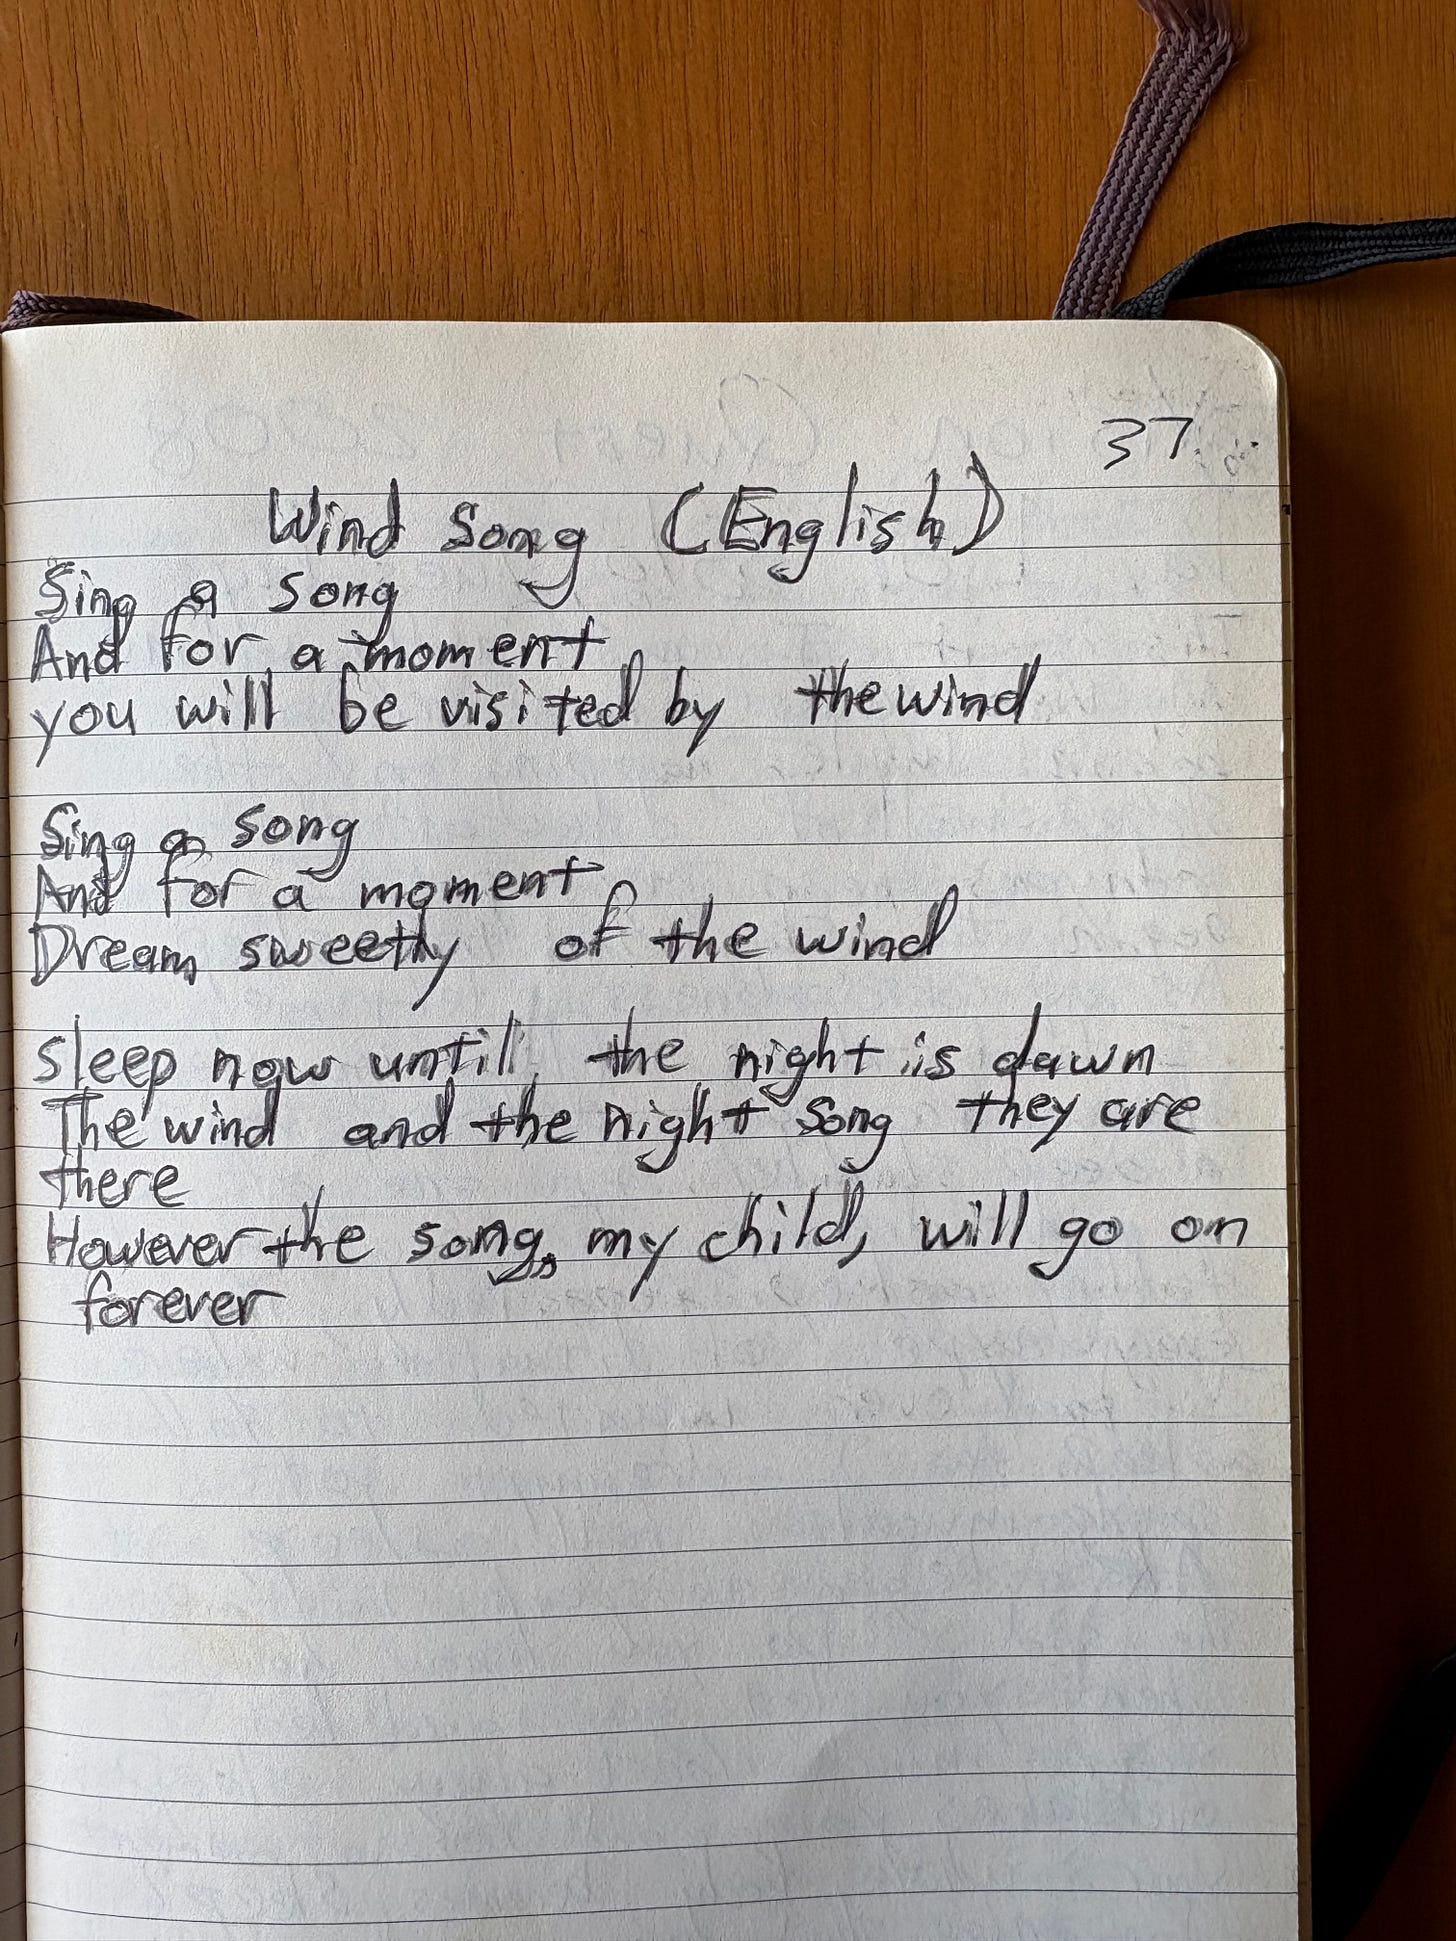 37
Wind Song (English)
Sing a song
And for a moment
you will be visited by the wind
Sing a song
And for a moment
Dream sweetly of the wind
Sleep now until the night is dawn
The wind and the night song they are
there
However the song, my child, will go on
forever